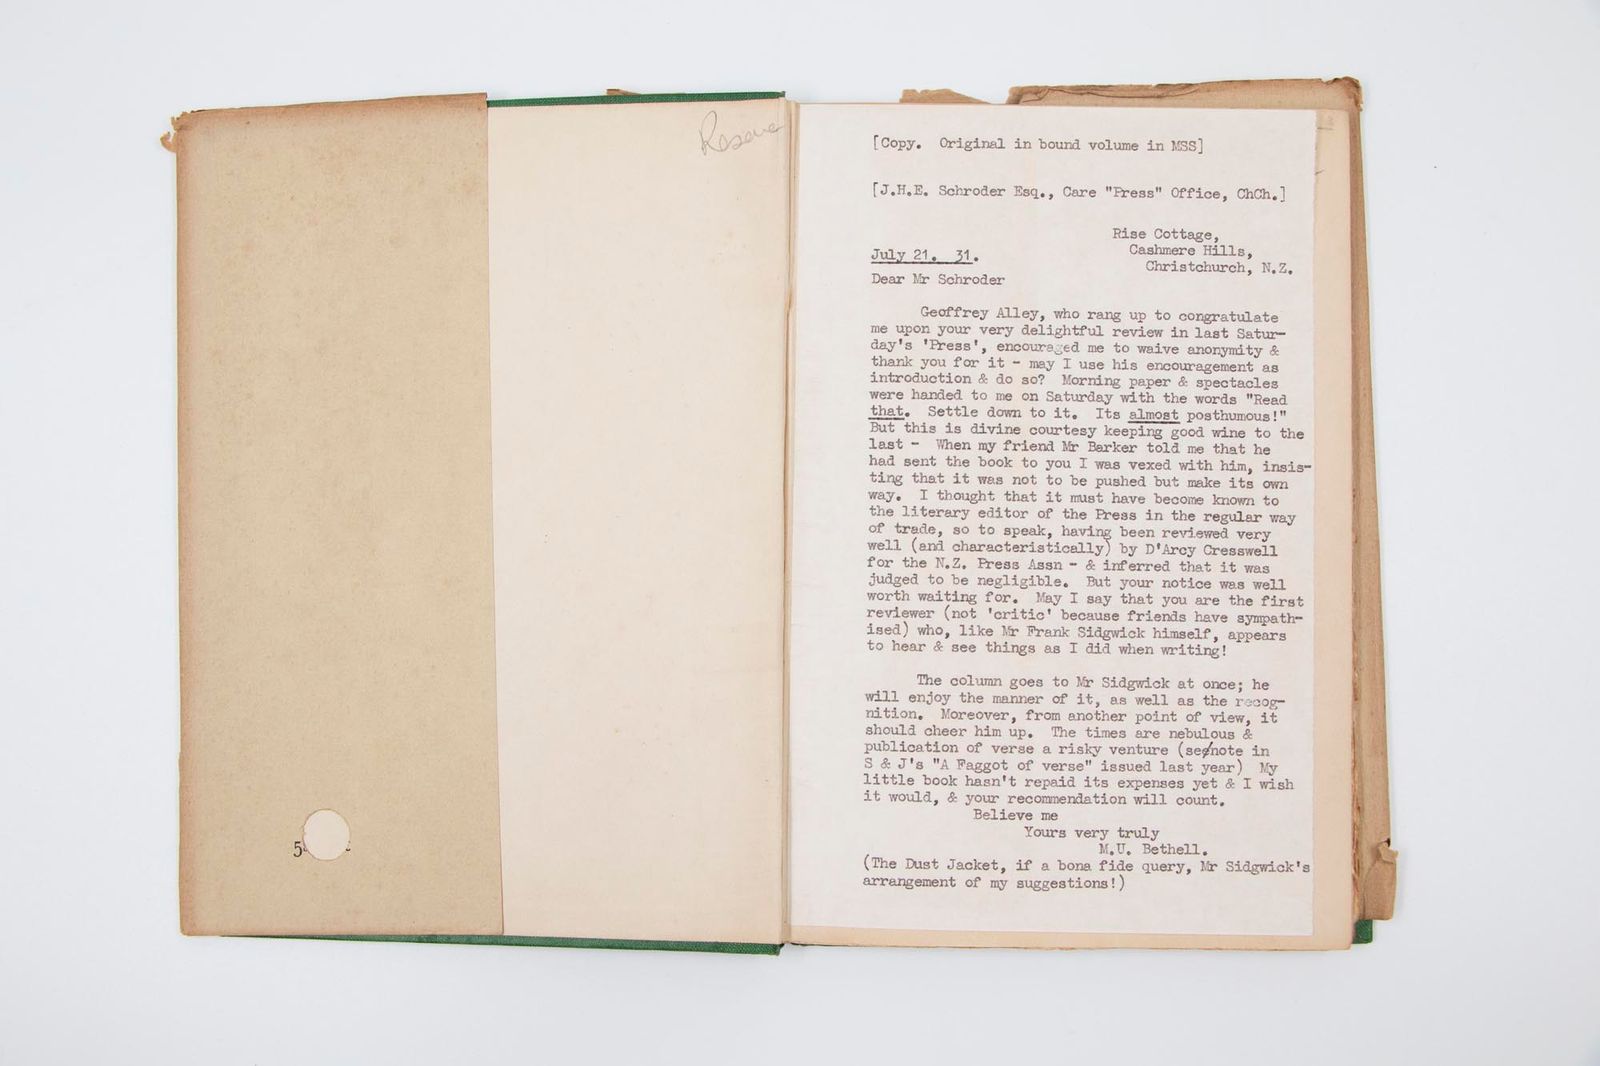 Reserve
5
[Copy. Original in bound volume in MSS]
[J.H.E. Schroder Esq., Care "Press" Office, ChCh.]
Rise Cottage,
Cashmere Hills,
Christchurch, N.Z.
July 21. 31.
Dear Mr Schroder
Geoffrey Alley, who rang up to congratulate
me upon your very delightful review in last Satur-
day's 'Press', encouraged me to waive anonymity &
thank you for it - may I use his encouragement as
introduction & do so? Morning paper & spectacles
were handed to me on Saturday with the words "Read
that. Settle down to it. Its almost posthumous!"
But this is divine courtesy keeping good wine to the
last - When my friend Mr Barker told me that he
had sent the book to you I was vexed with him, insis-
ting that it was not to be pushed but make its own
way. I thought that it must have become known to
the literary editor of the Press in the regular way
of trade, so to speak, having been reviewed very
well (and characteristically) by D'Arcy Cresswell
for the N.Z. Press Assn - & inferred that it was
judged to be negligible. But your notice was well
worth waiting for. May I say that you are the first
reviewer (not 'critic' because friends have sympath-
ised) who, like Mr Frank Sidgwick himself, appears
to hear & see things as I did when writing!
The column goes to Mr Sidgwick at once; he
will enjoy the manner of it, as well as the recog-
nition. Moreover, from another point of view, it
should cheer him up. The times are nebulous &
publication of verse a risky venture (see/note in
S & J's "A Faggot of verse" issued last year) My
little book hasn't repaid its expenses yet & I wish
it would, & your recommendation will count.
Believe me
Yours very truly
M.U. Bethell.
(The Dust Jacket, if a bona fide query, Mr Sidgwick's
arrangement of my suggestions!)